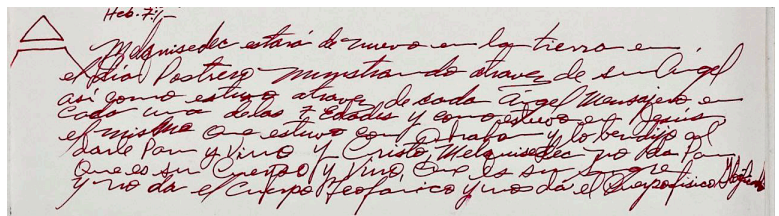 Heb. 7:1-
Melquisedec estará de nuevo en la tierra en
el día Postrero ministrando atravez de su Ángel
así como estuvo atravez de cada Ángel Mensajero en
cada una de las 7 Edades y como estuvo en Jesús,
el mismo que estuvo con Abraham y lo bendijo al
darle Pan y Vino y Cristo, Melquisedec no da Pan
Que es su Cuerpo y Vino, Que es su sangre
y no da el Cuerpo Teofánico y nos da el Cuerpo físico